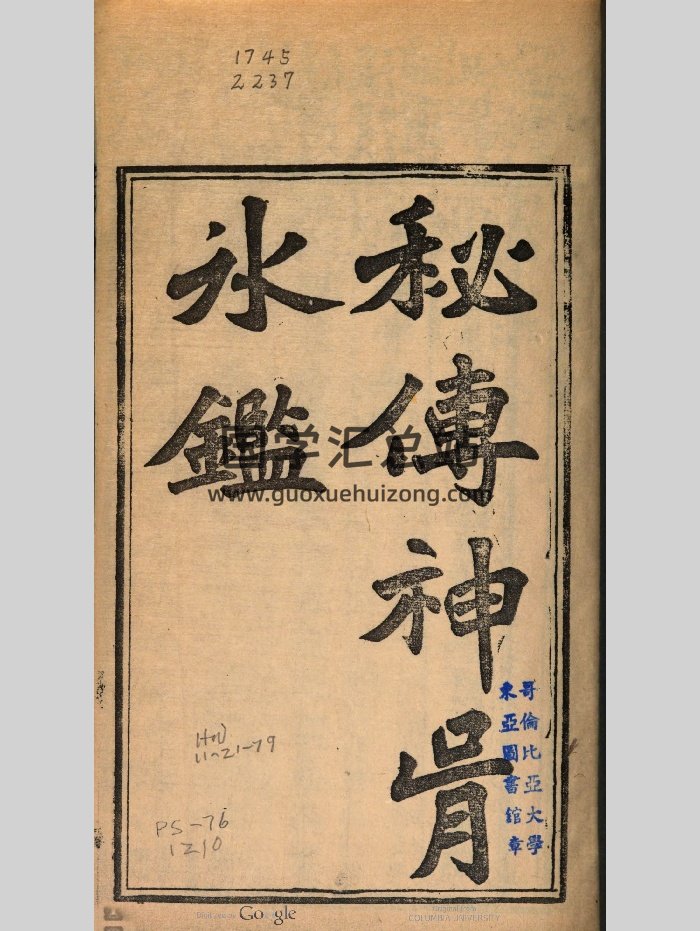 1745
2237
秘傳神骨
氷鑑
国学汇总站
www.guoxuehuizong.com
哥倫比亞大學
東亞圖書館章
11-21-79
PS-76
1210
Digitized by Google
Original from
COLUMBIA UNIVERSITY